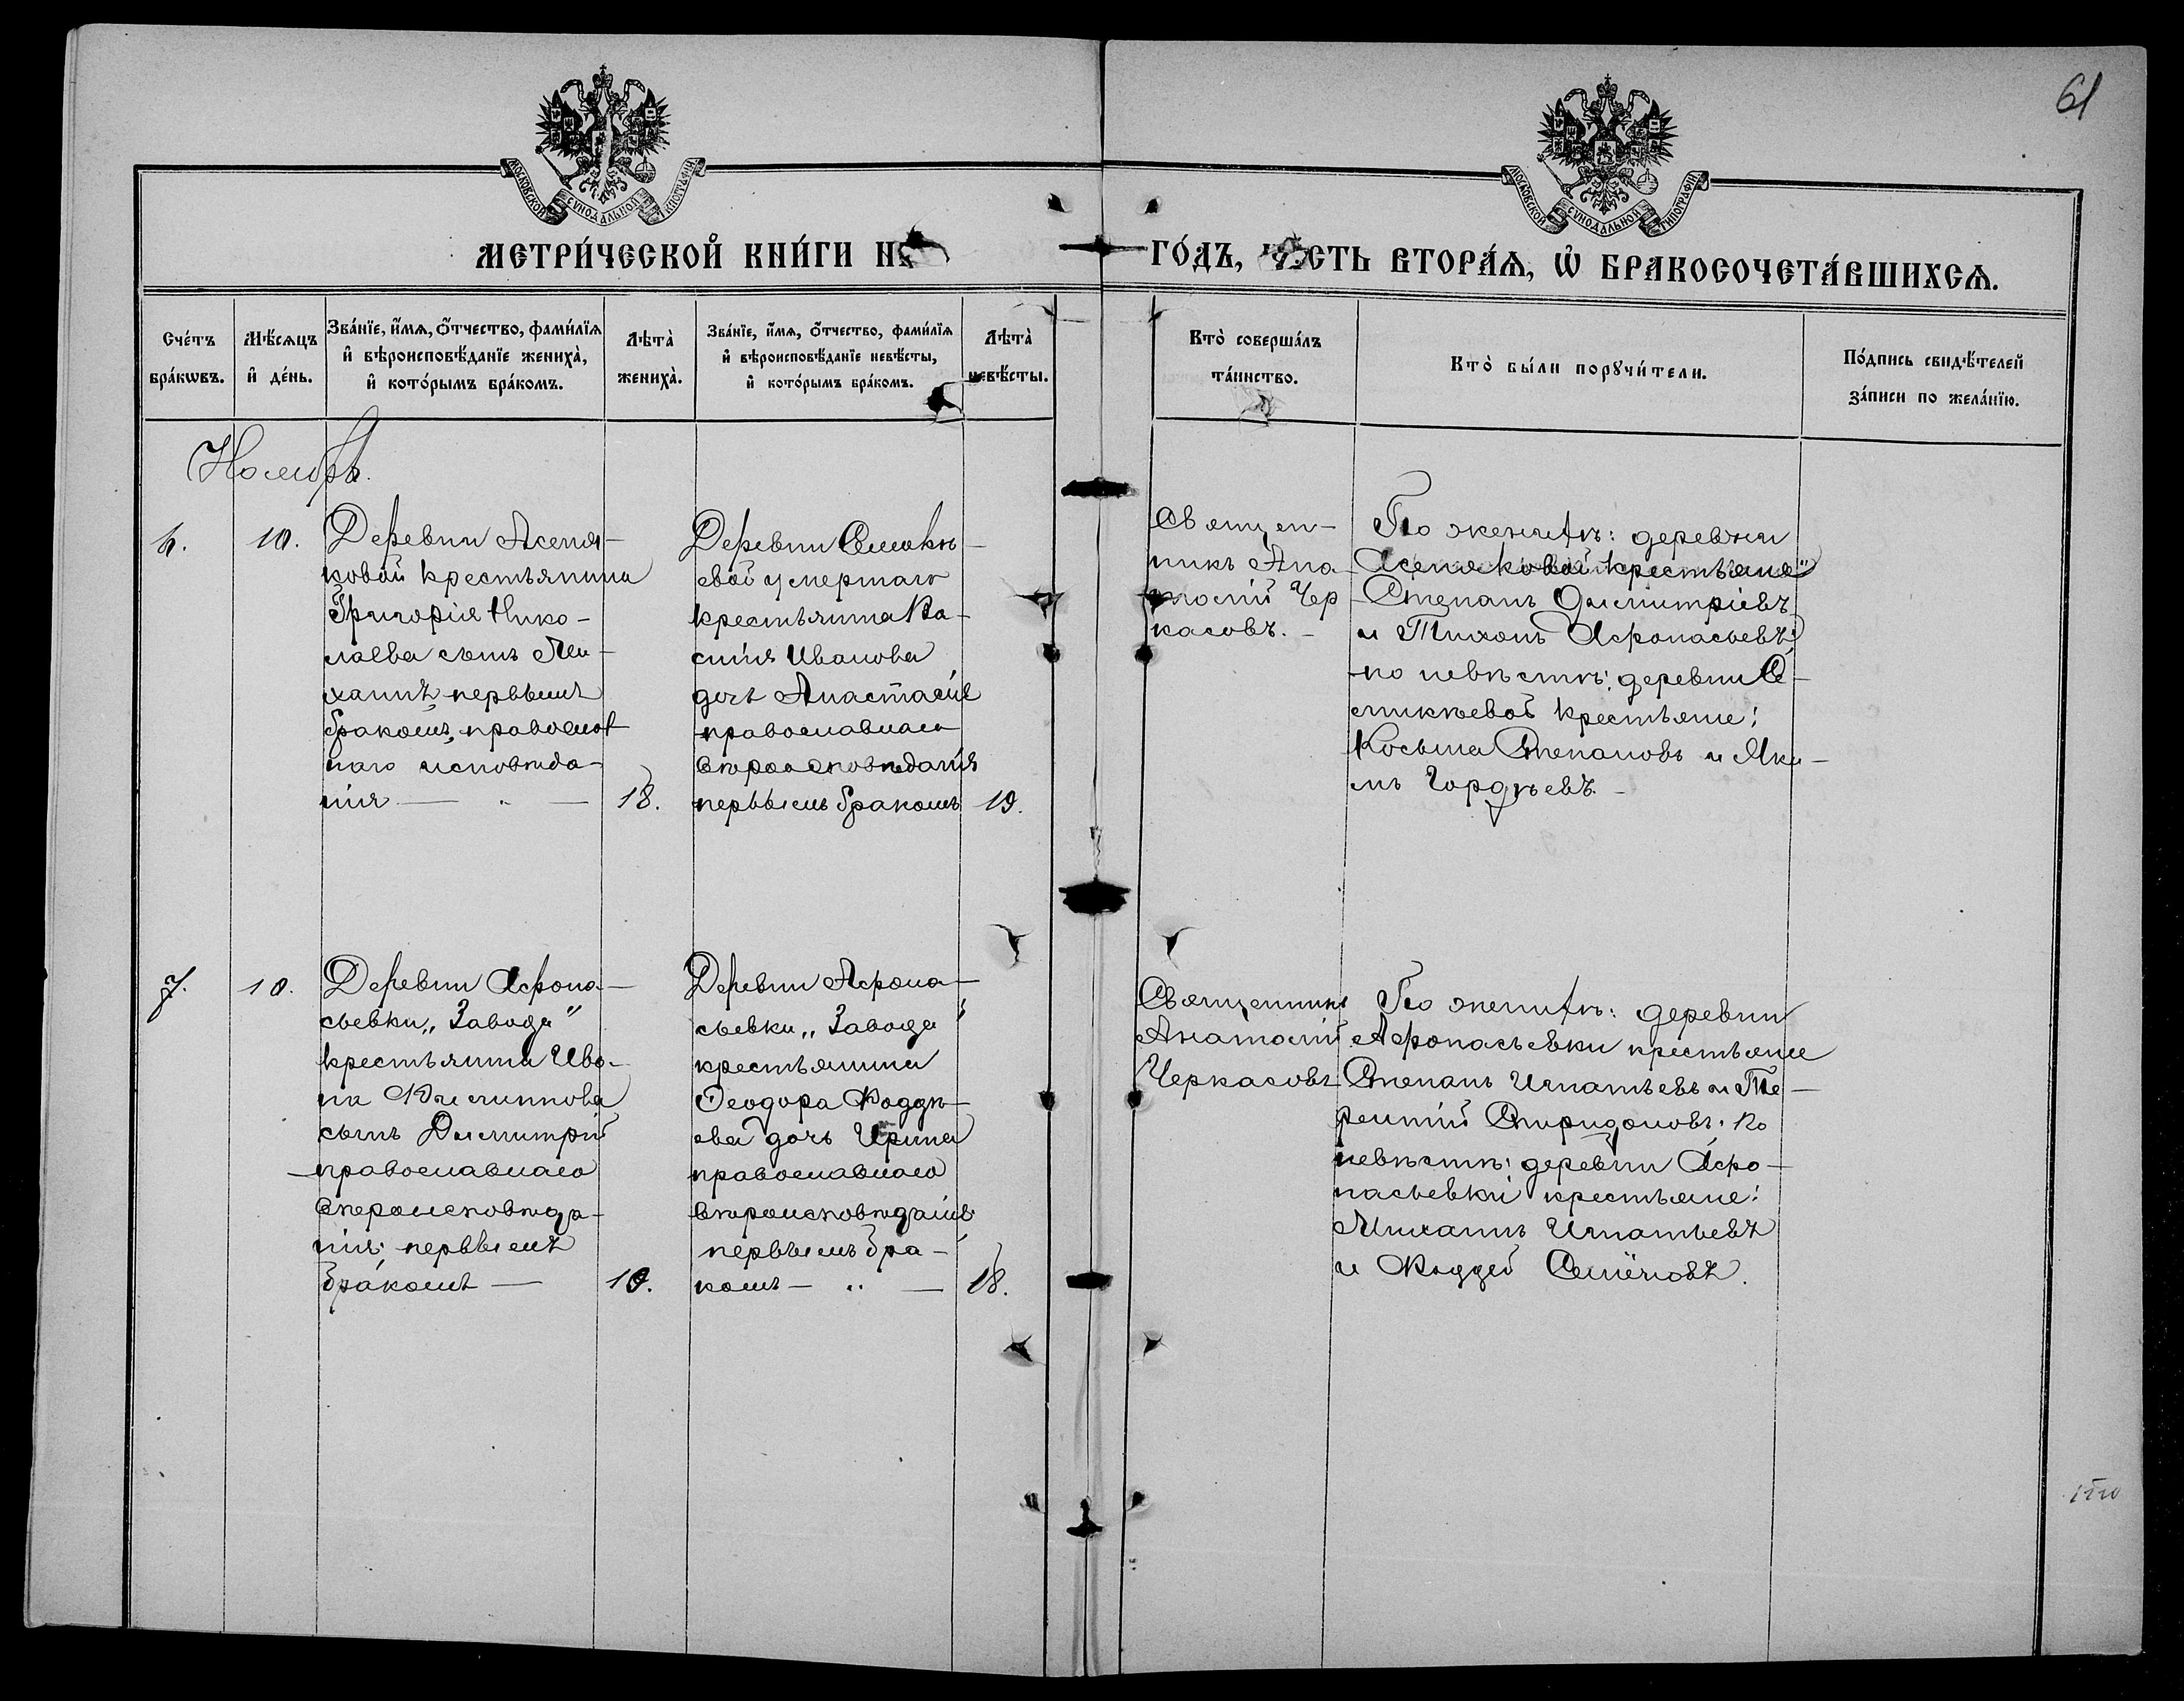 61
МОСКОВСКОЙ СѴНОДАЛЬНОЙ ТИПОГРАФІИ
МОСКОВСКОЙ СѴНОДАЛЬНОЙ ТИПОГРАФІИ
МЕТРИ́ЧЕСКОЙ КНИ́ГИ Н
ГО́ДЪ, ЧАСТЬ ВТОРА́Я, Ѽ БРАКОСОЧЕТА́ВШИХСѦ.
Сче́тъ
бра́кωвъ.
Мѣ́сѧцъ
и҆ де́нь.
Зва́нїе, и҆́мѧ, ѻ҆́тчество, фами́лїѧ
и҆ вѣроисповѣ́данїе жениха̀,
и҆ кото́рымъ бра́комъ.
Лѣта̀
жениха̀.
Зва́нїе, и҆́мѧ, ѻ҆́тчество, фами́лїѧ
и҆ вѣроисповѣ́данїе невѣ́сты,
и҆ кото́рымъ бра́комъ.
Лѣта̀
невѣ́сты.
Кто̀ соверша́лъ
та́инство.
Кто̀ бы́ли порꙋчи́тели.
По́дпись свидѣ́телей
за́писи по жела́нїю.
Ноябрь.
6.
10.
Деревни Асеня-
ковой крестьянина
Григорія Нико-
лаева сынъ Ми-
хаилъ, первымъ
бракомъ, православ
наго исповѣда-
нія — „ —
18.
Деревни
евой умершаго
крестьянина Ва-
силія Иванова
дочь Анастасія
православнаго
вѣроисповѣданія
первымъ бракомъ
19.
Священ-
никъ Ана-
толій Чер
касовъ. -
По женихѣ: деревни
Асеняковой крестьяне
Степанъ Димитріевъ
и Тихонъ Афонасьевъ;
по невѣстѣ: деревни Се-
микѣевой крестьяне:
Косьма Степановъ и Яки-
мъ Гордѣевъ. -
7.
10.
Деревни Афона-
сьевки „Завода"
крестьянина Ива-
на Климентова
сынъ Димитрій
православнаго
вѣроисповѣда-
нія, первымъ
бракомъ —
19.
Деревни Афона-
сьевки „Завода"
крестьянина
Ѳеодора Фаддѣ-
ева дочь Ирина
православнаго
вѣроисповѣданія
первымъ бра-
комъ — „ —
18.
Священникъ
Анатолій
Черкасовъ
По женихѣ: деревни
Афонасьевки крестьяне
Степанъ Игнатьевъ и Те-
рентій Спиридоновъ; по
невѣстѣ: деревни Афо-
насьевки крестьяне:
Михаилъ Игнатьевъ
и Фаддей Семёновъ.